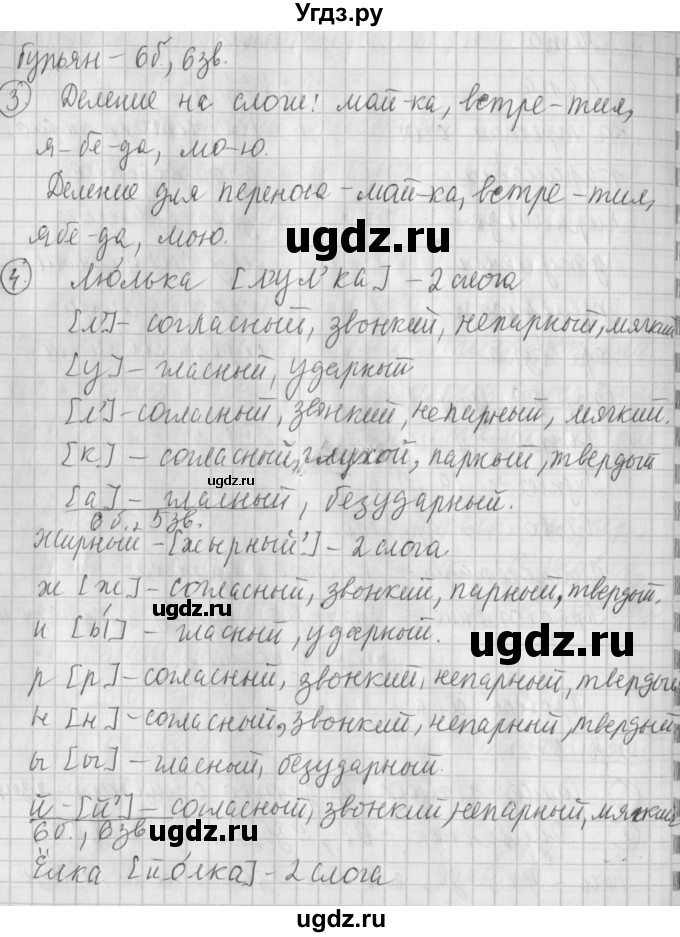 Угдз.ру
бурьян – 6б., 6зв.
3. Деление на слоги: май-ка, встре-тил,
я-бе-да, мо-ю.
Деление для переноса – май-ка, встре-тил,
ябе-да, мою.
ugdz.ru
4. Люлька [л'ул'ка] – 2 слога
[л'] – согласный, звонкий, непарный, мягкий
[у] – гласный, ударный
[л'] – согласный, звонкий, непарный, мягкий.
[к] – согласный, глухой, парный, твердый
ugdz.ru
[а] – гласный, безударный.
6б., 5зв.
Жирный – [жырный'] – 2 слога
ж [ж] – согласный, звонкий, парный, твердый.
ugdz.ru
и [ы́] – гласный, ударный.
ugdz.ru
р [р] – согласный, звонкий, непарный, твердый
н [н] – согласный, звонкий, непарный, твердый
ы [ы] – гласный, безударный.
й – [й'] – согласный, звонкий, непарный, мягкий
6б., 6зв
ugdz.ru
Ёлка [йо́лка] – 2 слога
ugdz.ru